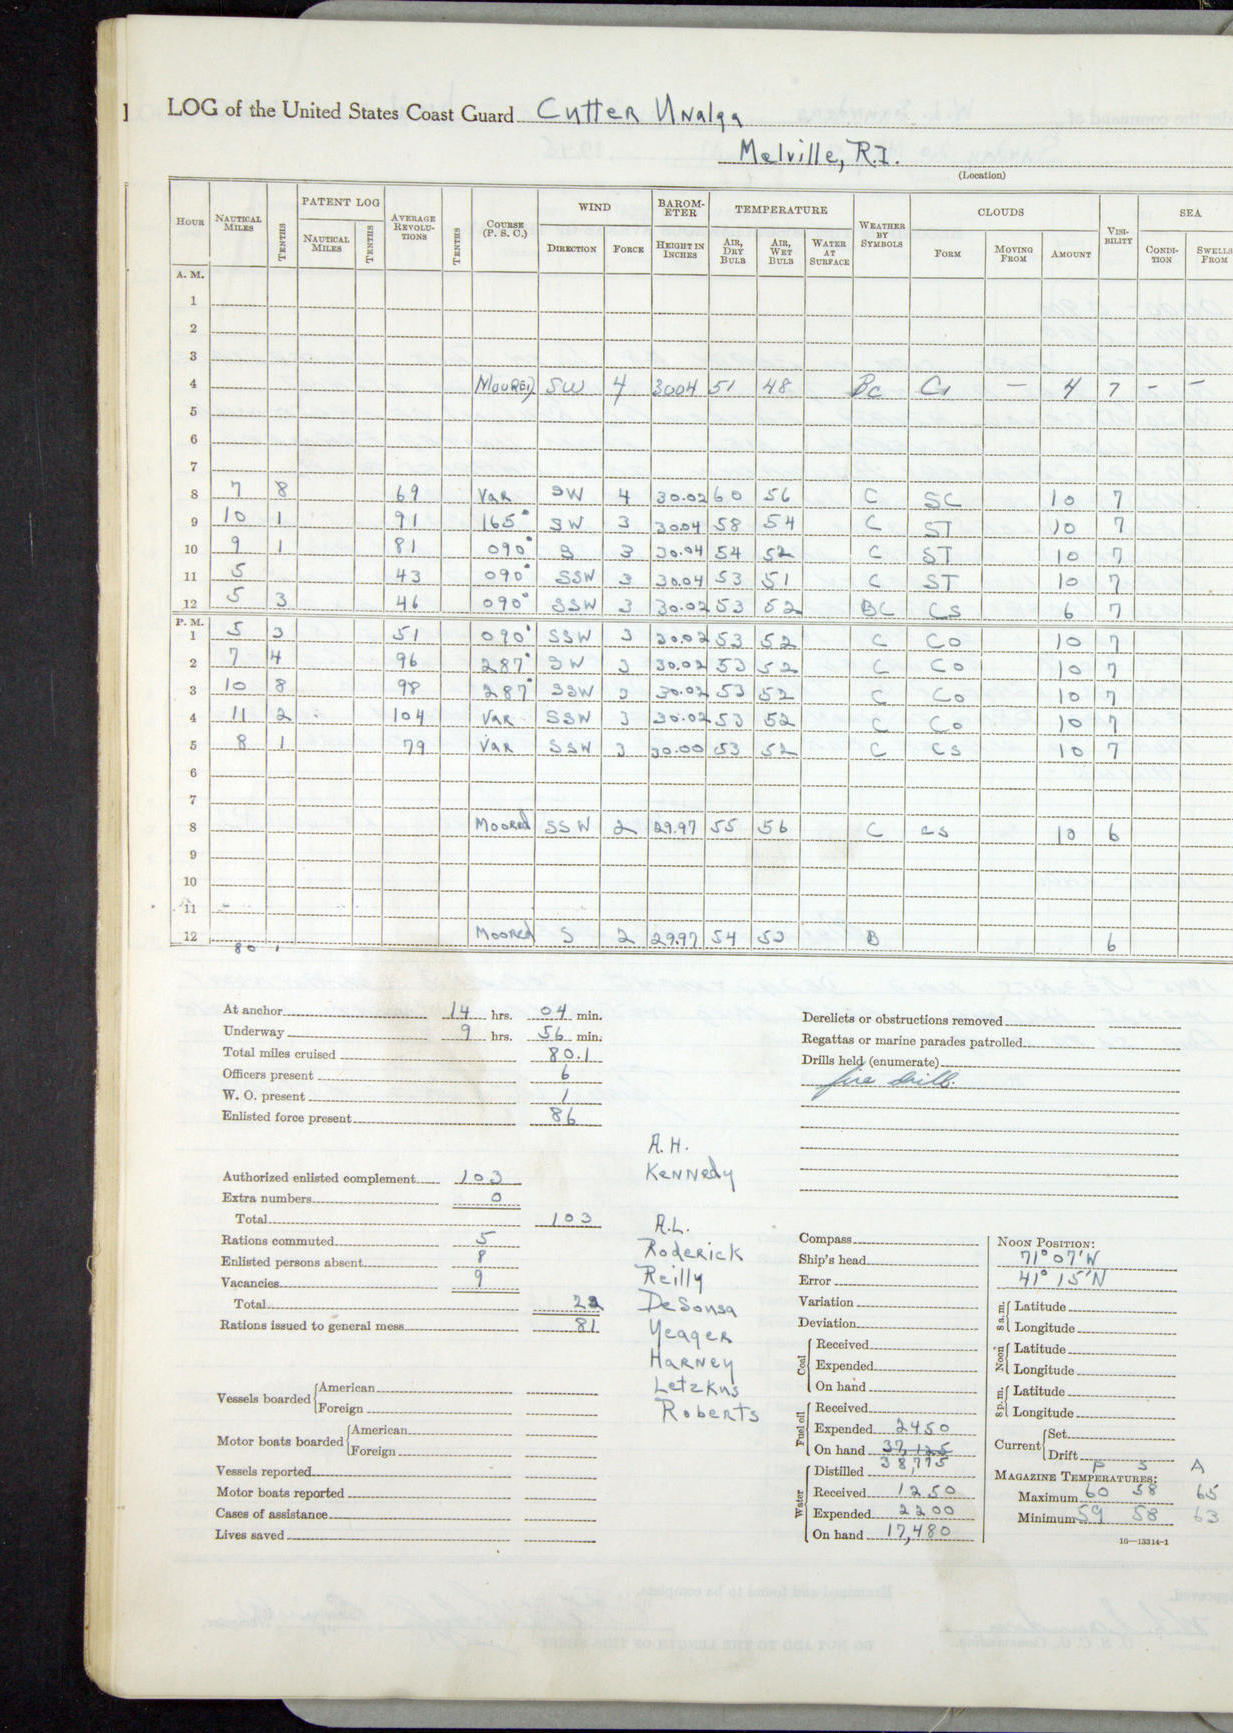 LOG of the United States Coast Guard Cutter Unalga
Melville, R.I.
(Location)
HOUR NAUTICAL MILES TENTHS PATENT LOG NAUTICAL MILES TENTHS AVERAGE REVOLU-TIONS TENTHS COURSE (P. S. C.) WIND DIRECTION FORCE BAROM-ETER HEIGHT IN INCHES TEMPERATURE AIR, DRY BULB AIR, WET BULB WATER AT SURFACE WEATHER BY SYMBOLS CLOUDS FORM MOVING FROM AMOUNT VISI-BILITY SEA CONDI-TION SWELLS FROM
A. M.
1
2
3
4 Moored SW 4 3004 51 48 Bc Cs — 4 7 - -
5
6
7
8 7 8 69 Var SW 4 30.02 60 56 C SC 10 7
9 10 1 91 165° SW 3 30.04 58 54 C ST 10 7
10 9 1 81 090° S 3 30.04 54 52 C ST 10 7
11 5 43 090° SSW 3 30.04 53 51 C ST 10 7
12 5 3 46 090° SSW 3 30.02 53 52 BC CS 6 7
P. M.
1 5 3 51 090° SSW 3 30.02 53 52 C Co 10 7
2 7 4 96 287° SW 3 30.02 53 52 C Co 10 7
3 10 8 98 287° SSW 3 30.02 53 52 C Co 10 7
4 11 2 104 Var SSW 3 30.02 53 52 C Co 10 7
5 8 1 79 Var SSW 3 30.00 53 52 C CS 10 7
6
7
8 Moored SSW 2 29.97 55 56 C CS 10 6
9
10
11
12 Moored S 2 29.97 54 53 B 6
80 1
At anchor 14 hrs. 04 min.
Underway 9 hrs. 56 min.
Total miles cruised 80.1
Officers present 6
W. O. present 1
Enlisted force present 86
Authorized enlisted complement 103
Extra numbers 0
Total 103
Rations commuted 5
Enlisted persons absent 8
Vacancies 9
Total 22
Rations issued to general mess 81
Vessels boarded American
Foreign
Motor boats boarded American
Foreign
Vessels reported
Motor boats reported
Cases of assistance
Lives saved
A.H.
Kennedy
A.L.
Roderick
Reilly
DeSousa
Yeager
Harney
Letzkus
Roberts
Derelicts or obstructions removed
Regattas or marine parades patrolled
Drills held (enumerate)
fire drill.
Compass
Ship's head
Error
Variation
Deviation
Coal Received
Expended
On hand
Fuel oil Received
Expended 2450
On hand 37,125
38,775
Water Distilled
Received 1250
Expended 2200
On hand 17,480
NOON POSITION:
71° 07' W
41° 15' N
8 a. m. Latitude
Longitude
Noon Latitude
Longitude
8 p. m. Latitude
Longitude
Current Set
Drift
P S A
MAGAZINE TEMPERATURES:
Maximum 60 58 65
Minimum 59 58 63
16—13314-1